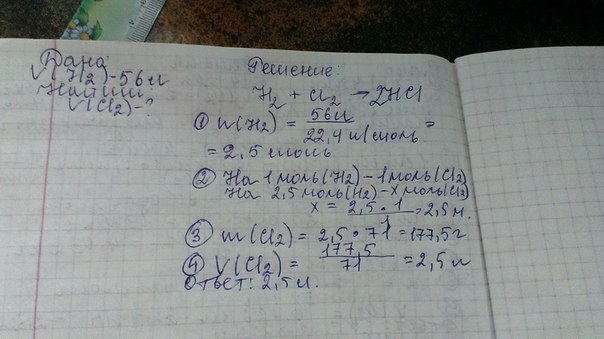 Дана:
V(H₂)-56л
Найти:
V(Cl₂)-?
Решение:
H₂ + Cl₂ → 2HCl
① n(H₂) = 56л / 22,4 л/моль =
= 2,5 моль
② На 1 моль(H₂) – 1 моль(Cl₂)
На 2,5 моль(H₂) – x моль(Cl₂)
x = 2,5 • 1 / 1 = 2,5 м.
③ m(Cl₂) = 2,5 • 71 = 177,5 г
④ V(Cl₂) = 177,5 / 71 = 2,5 л
Ответ: 2,5 л.